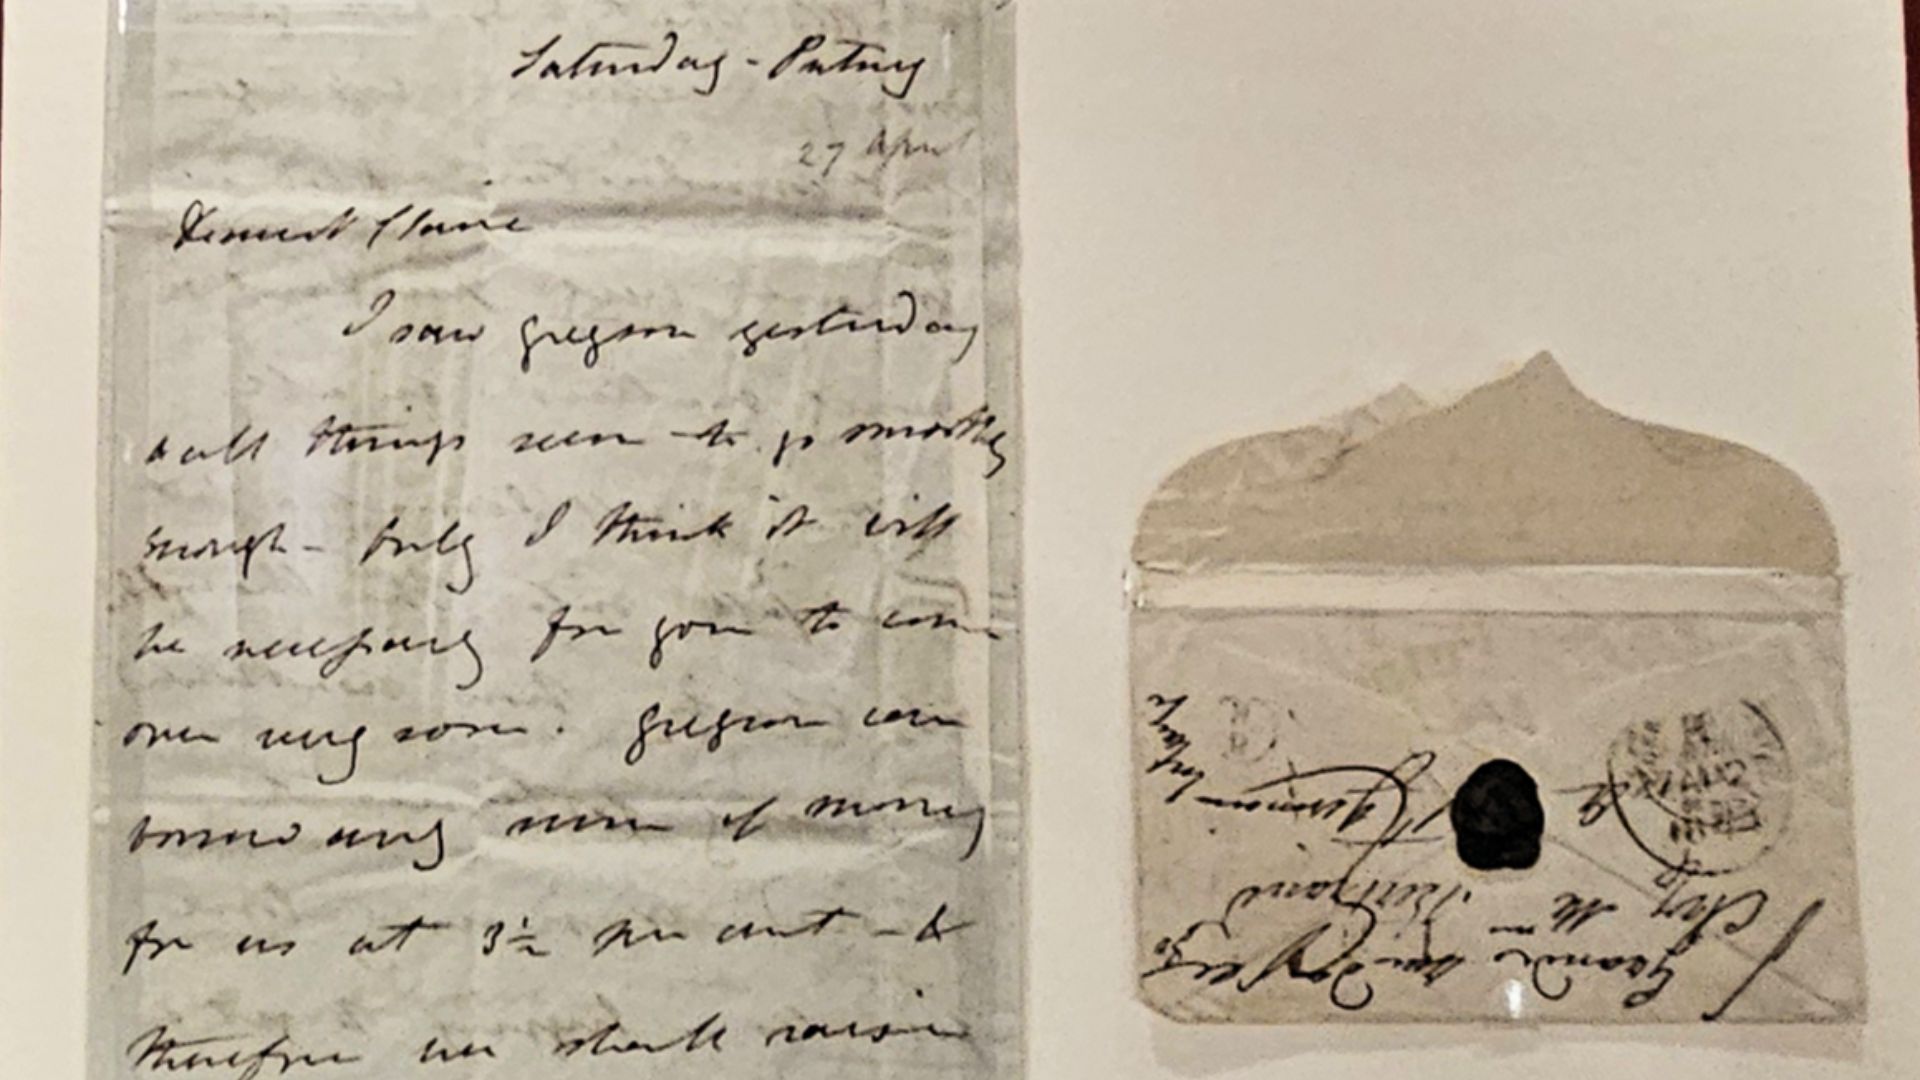 Saturday - Putney
27 April
Dearest Claire
I saw Gregson yesterday
& all things seem to go smoothly
enough - Only I think it will
be necessary for you to come
over very soon. Gregson can
borrow any sum of money
for us at 3½ per cent - &
therefore we shall raise
Grande
Chez Mme
St Germain